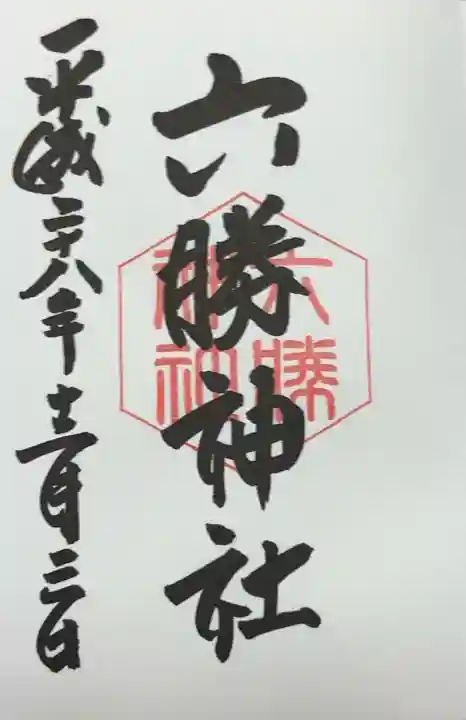 六勝神社
六勝神社
平成二十八年十二月三日